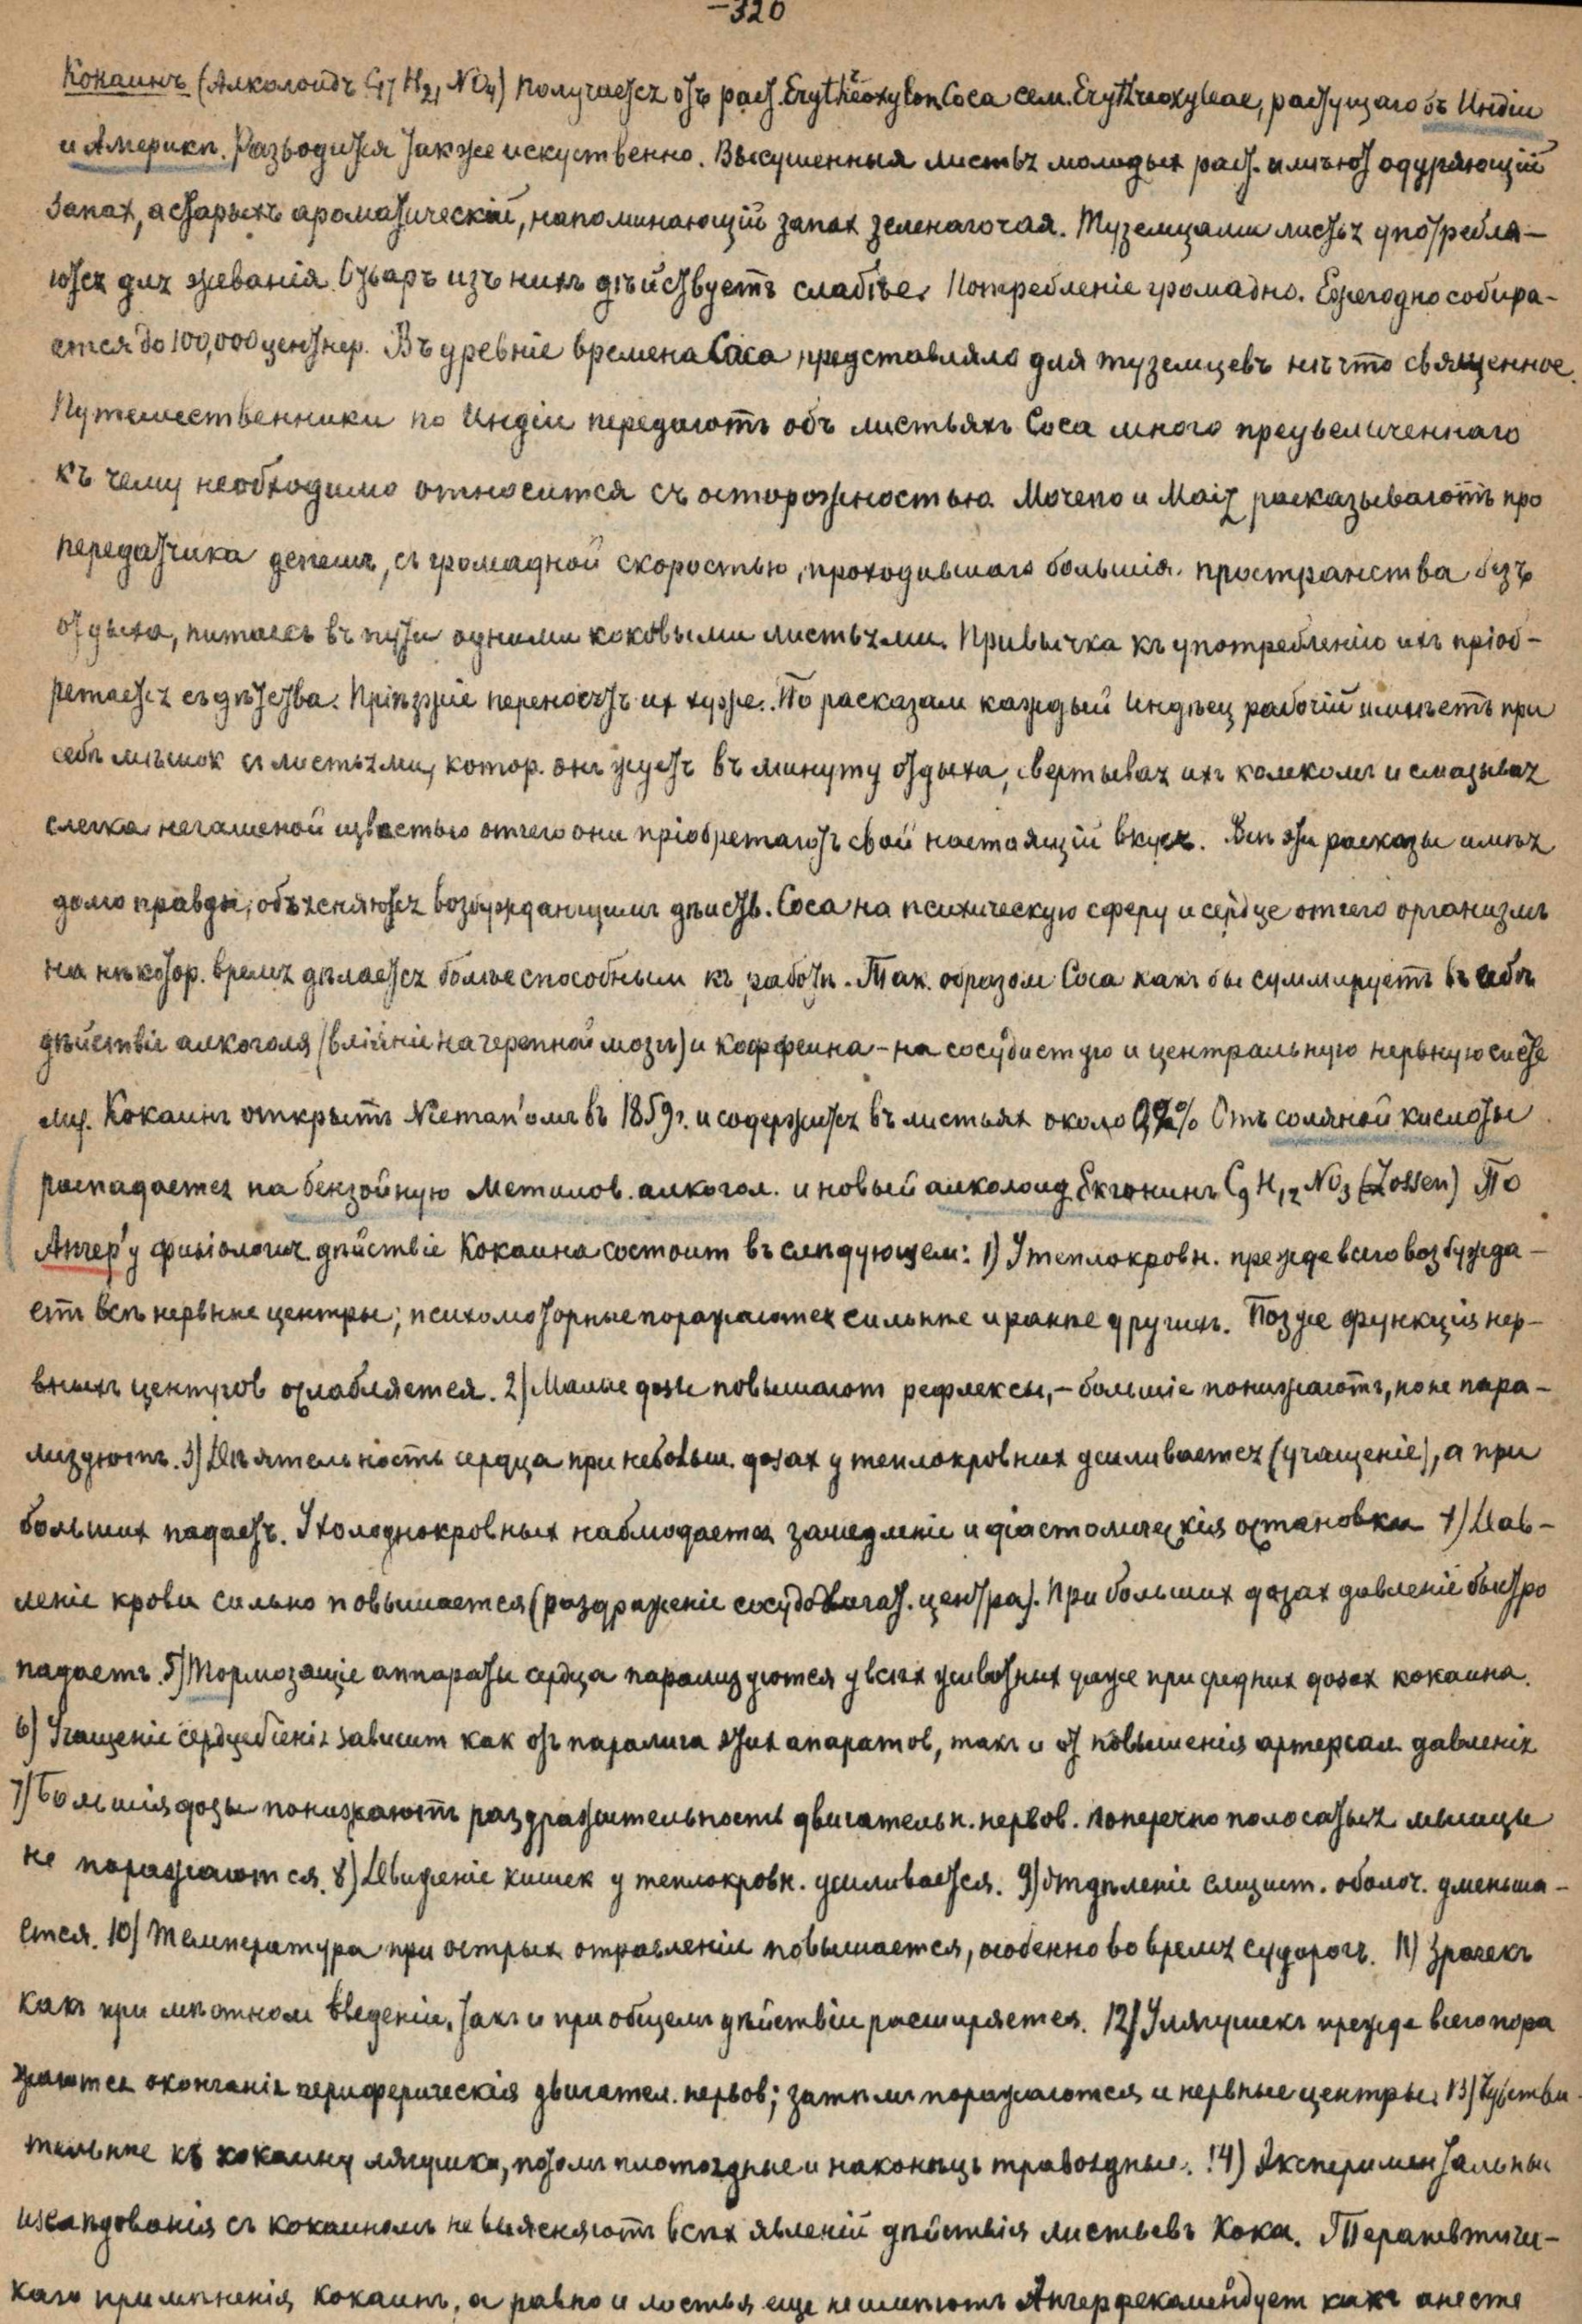 –320
Кокаинъ (Алколоидъ C17 H21 NO4) Получается отъ раст. Erythroxylon Coca сем. Erythroxyleae, растущаго въ Индiи
и Америкѣ. Разводится также искуственно. Высушенныя листья молодых раст. имѣют одуряющiй
запах, а старыхъ ароматическiй, напоминающiй запах зеленаго чая. Туземцами листья употребля–
ются для жеванiя. Отваръ изъ нихъ дѣйствуетъ слабѣе. Потребленiе громадно. Ежегодно собира–
ется до 100,000 центнер. Въ древнiе времена Coca представляло для туземцевъ нѣчто священное.
Путешественники по Индiи передаютъ объ листьяхъ Coca много преувеличеннаго
къ чему необходимо относится съ осторожностью. Moreno и Maiz расказываютъ про
передатчика депешъ, съ громадной скоростью, проходившаго большiя пространства безъ
отдыха, питаясь въ пути одними коковыми листьями. Привычка къ употребленiю ихъ прiоб–
ретается съ дѣтства. Прiѣзжiе переносятъ их хуже. По расказам каждый Индѣец рабочiй имѣетъ при
себѣ мѣшок съ листьями, котор. онъ жуетъ въ минуту отдыха, свертывая ихъ комкомъ и смазывая
слегка негашеной известью отчего они прiобретаютъ свой настоящiй вкусъ. Всѣ эти расказы имѣя
долю правды, объясняются возбуждающимъ дѣйств. Coca на психическую сферу и сердце отчего организмъ
на нѣкотор. время дѣлается болѣе способным къ работѣ. Так. образом Coca какъ бы суммируетъ въ себѣ
дѣйствiе алкоголя (влiянiе на черепной мозгъ) и коффеина – на сосудистую и центральную нервную систе
му. Кокаинъ открытъ Nieman'омъ въ 1859г. и содержится въ листьях около 0,2% Отъ соляной кислоты
распадается на бензойную метилов. алкогол. и новый алколоид Екгонинъ C9 H12 NO3 (Lossen) По
Анчер'у физiологич. дѣйствiе Кокаина состоит въ слѣдующем: 1) У теплокровн. прежде всего возбужда–
етъ всѣ нервные центры; психомоторные поражаются сильнѣе и ранѣе другихъ. Позже функцiя нер–
вныхъ центров ослабляется. 2) Малые дозы повышают рефлексы, – большiе понижаютъ, но не пара–
лизуютъ. 3) Дѣятельность сердца при небольш. дозах у теплокровных усиливается (учащенiе), а при
больших падаетъ. У холоднокровных наблюдается замедленiе и дiастолическiя остановки 4) Дав–
ленiе крови сильно повышается (раздраженiе сосудодвигат. центра). При больших дозах давленiе быстро
падаетъ. 5) Тормозящiе аппараты сердца парализуются у всѣх животных даже при средних дозах кокаина.
6) Учащенiе сердцебiенiя зависит как отъ паралича этих апаратов, такъ и от повышенiя артерiал. давленiя
7) Большiя дозы понижаютъ раздражительность двигательн. нервов. Поперечно полосатыя мышцы
не поражаются. 8) Движенiе кишек у теплокровн. усиливается. 9) Отдѣленiе слизист. оболоч. уменьша–
ется. 10) Температура при острых отравленiи повышается, особенно во время судорогъ. 11) Зрачекъ
какъ при мѣстном введенiи, такъ и при общемъ дѣйствiи расширяется. 12) У лягушекъ прежде всего пора
жаются окончанiя периферическiя двигател. нервов; затѣмъ поражаются и нервные центры. 13) Чувстви–
тельнѣе къ кокаину лягушка, потомъ плотоядные и наконецъ травоядные. 14) Эксперименталь­ные
изслѣдованiя съ кокаиномъ не выясняютъ всѣх явленiй дѣйствiя листьевъ Кока. Терапевтиче–
каго примѣненiя кокаинъ, а равно и листья еще не имѣютъ Анчер рекомендует какъ анесте